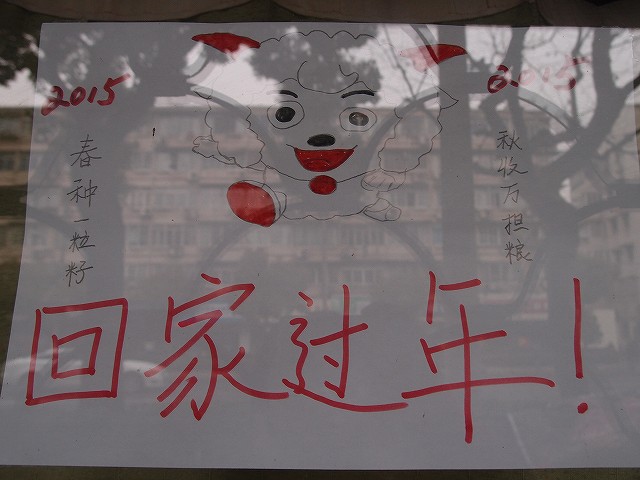 2015
春种一粒籽
秋收万担粮
回家过年!